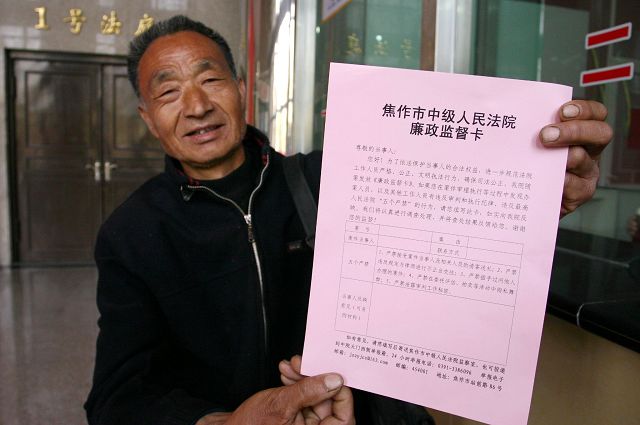 1号法庭
焦作市中级人民法院
廉政监督卡
尊敬的当事人：
您好！为了依法保护当事人的合法权益，进一步规范法院
工作人员严格、公正、文明执法行为，确保司法公正，我院随
案发放《廉政监督卡》。如果您在案件审理执行等过程中发现办
案人员，以及其他工作人员有违反审判和执行纪律、违反最高
人民法院"五个严禁"的行为，请您填写此卡，如实向我院反
映。我们将认真进行调查处理，并将查处结果反馈给您。谢谢
您的监督！
案 号
案件当事人
联系方式
五个严禁
1、严禁接受案件当事人及相关人员的请客送礼；2、严禁
违反规定与律师进行不正当交往；3、严禁插手过问他人
办理的案件；4、严禁在委托评估、拍卖等活动中徇私舞
弊；5、严禁泄露审判工作秘密。
当事人反映
意见（可另
附材料）
如有意见，请您填写后寄送焦作市中级人民法院监察室，也可投递
到中院大门西侧举报箱。24小时举报电话：0391-3386096 举报电子
邮箱： 邮编：454001 地址：焦作市站前路86号